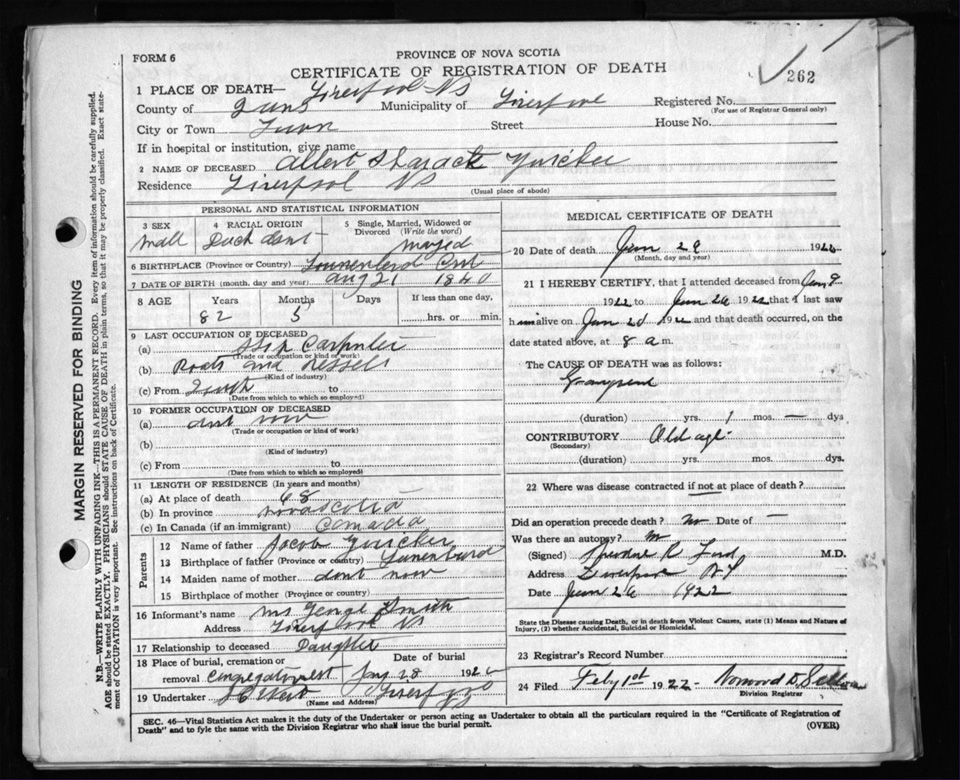 FORM 6
PROVINCE OF NOVA SCOTIA
CERTIFICATE OF REGISTRATION OF DEATH
262
1 PLACE OF DEATH— Liverpool NS
County of Queens Municipality of Liverpool Registered No.
(For use of Registrar General only)
City or Town Town Street House No.
If in hospital or institution, give name
2 NAME OF DECEASED Albert
Residence Liverpool NS
(Usual place of abode)
PERSONAL AND STATISTICAL INFORMATION
3 SEX
4 RACIAL ORIGIN
5 Single, Married, Widowed or Divorced (Write the word)
6 BIRTHPLACE (Province or Country)
7 DATE OF BIRTH (month, day and year) Aug 21 1840
8 AGE Years Months Days If less than one day,
82 5 ....hrs. or .... min.
9 LAST OCCUPATION OF DECEASED
(a) Ship Carpnter
(Trade or occupation or kind of work)
(b) Boats and Vessels
(Kind of industry)
(c) From to
(Date from which to which so employed)
10 FORMER OCCUPATION OF DECEASED
(a) dont now
(Trade or occupation or kind of work)
(b)
(Kind of industry)
(c) From to
(Date from which to which so employed)
11 LENGTH OF RESIDENCE (In years and months)
(a) At place of death 68
(b) In province novascotia
(c) In Canada (if an immigrant) Comada
Parents
12 Name of father Jacob
13 Birthplace of father (Province or country)
14 Maiden name of mother dont now
15 Birthplace of mother (Province or country)
16 Informant's name Smith
Address Liverpool NS
17 Relationship to deceased Daughter
18 Place of burial, cremation or removal Date of burial
Jany 28 192
19 Undertaker
(Name and Address)
MEDICAL CERTIFICATE OF DEATH
20 Date of death Jan 192
(Month, day and year)
21 I HEREBY CERTIFY, that I attended deceased from Jan 9
1922 to Jan 26 1922 that I last saw
h im alive on Jan 1922 and that death occurred, on the
date stated above, at 8 a m.
The CAUSE OF DEATH was as follows:
(duration) yrs. 1 mos. — dys
CONTRIBUTORY Old age
(Secondary)
(duration) yrs. mos. dys.
22 Where was disease contracted if not at place of death?
Did an operation precede death? no Date of —
Was there an autopsy?
(Signed) Theodore R Ford M.D.
Address Liverpool NS
Date Jan 26 1922
State the Disease causing Death, or in death from Violent Causes, state (1) Means and Nature of
Injury, (2) whether Accidental, Suicidal or Homicidal.
23 Registrar's Record Number
24 Filed Feby 1st 1922
Division Registrar
SEC. 46—Vital Statistics Act makes it the duty of the Undertaker or person acting as Undertaker to obtain all the particulars required in the "Certificate of Registration of
Death" and to fyle the same with the Division Registrar who shall issue the burial permit.
(OVER)
MARGIN RESERVED FOR BINDING
N.B.—WRITE PLAINLY WITH UNFADING INK—THIS IS A PERMANENT RECORD. Every item of information should be carefully supplied.
AGE should be stated EXACTLY. PHYSICIANS should STATE CAUSE OF DEATH in plain terms, so that it may be properly classified. Exact state-
ment of OCCUPATION is very important. See instructions on back of Certificate.